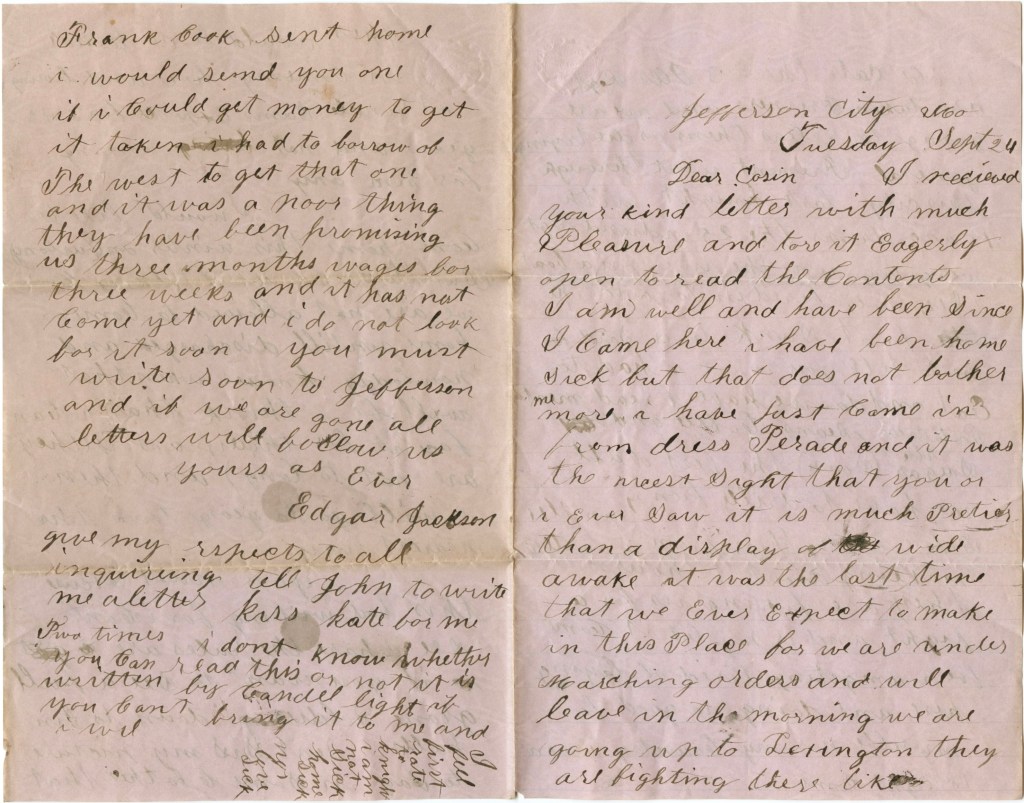 Jefferson City Mo
Tuesday Sept 24
Dear Cosin I recieved
your kind letter with much
Pleasure and tore it Eagerly
open to read the Contents
I am well and have been Since
I Came here i have been home
Sick but that does not bother
me
more i have Just Come in
from dress Perade and it was
the nicest Sight that you or
i Ever Saw it is much Pretier
than a display of wide
awake it was the last time
that we Ever Expect to make
in this Place for we are under
Marching orders and will
leave in the morning we are
going up to Lexington they
are fighting there like
Frank Cook sent home
i would send you one
if i Could get money to get
it taken i had to borrow of
The west to get that one
and it was a poor thing
they have been promising
us three months wages for
three weeks and it has not
Come yet and i do not look
for it soon you must
write soon to Jefferson
and if we are gone all
letters will follow us
yours as Ever
Edgar Jackson
give my rspects to all
inquireing tell John to write
me a letter kiss kate for me
Two times i dont know whether
you Can read this or not it is
written by Candel light if
you Cant bring it to me and
i wil
I feel
first
rate
i am
not
Sick
home
Sick
nor
love
Sick